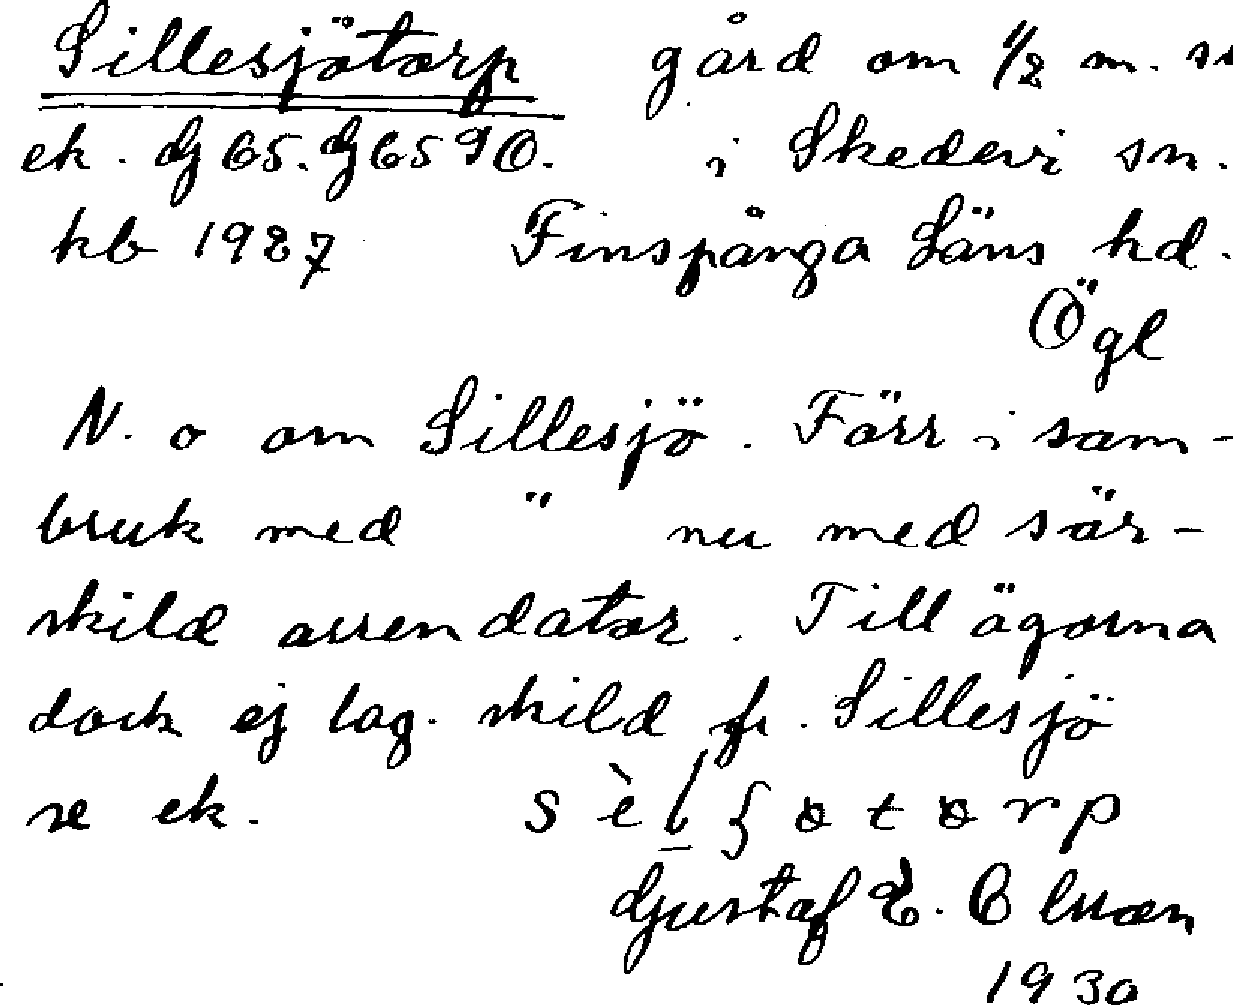 Sillesjötorp gård om 1/2 m.
ek. dj 65. dj 65 90. i Skedevi sn.
kb 1927 Finspånga Läns hd.
Ögl
N. o om Sillesjö. Förr i sam-
bruk med " nu med sär-
skild arrendator. Till ägorna
dock ej lag. skild fr. Sillesjö
se ek.
Gustaf E.
1930